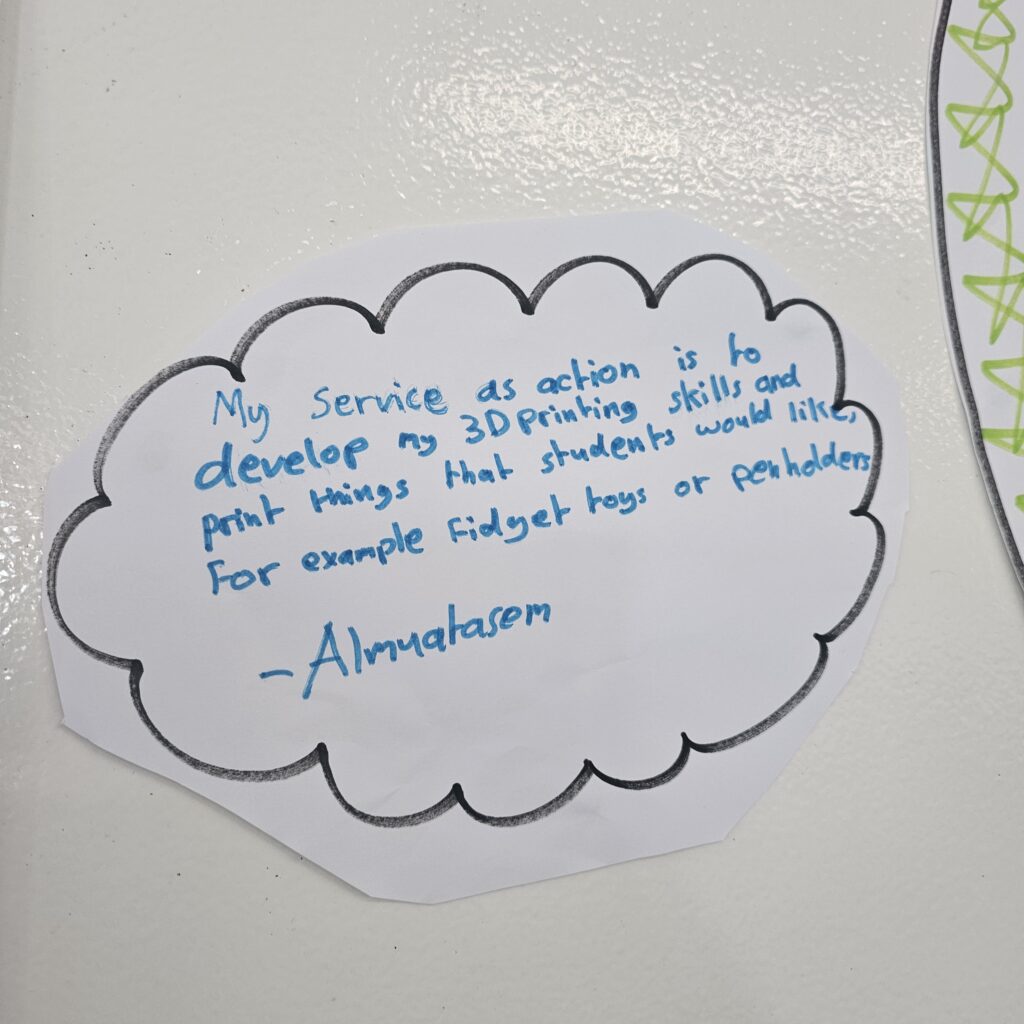 My Service as action is to
develop my 3D printing skills and
print things that students would like,
For example Fidget toys or penholders
- Almuatasem